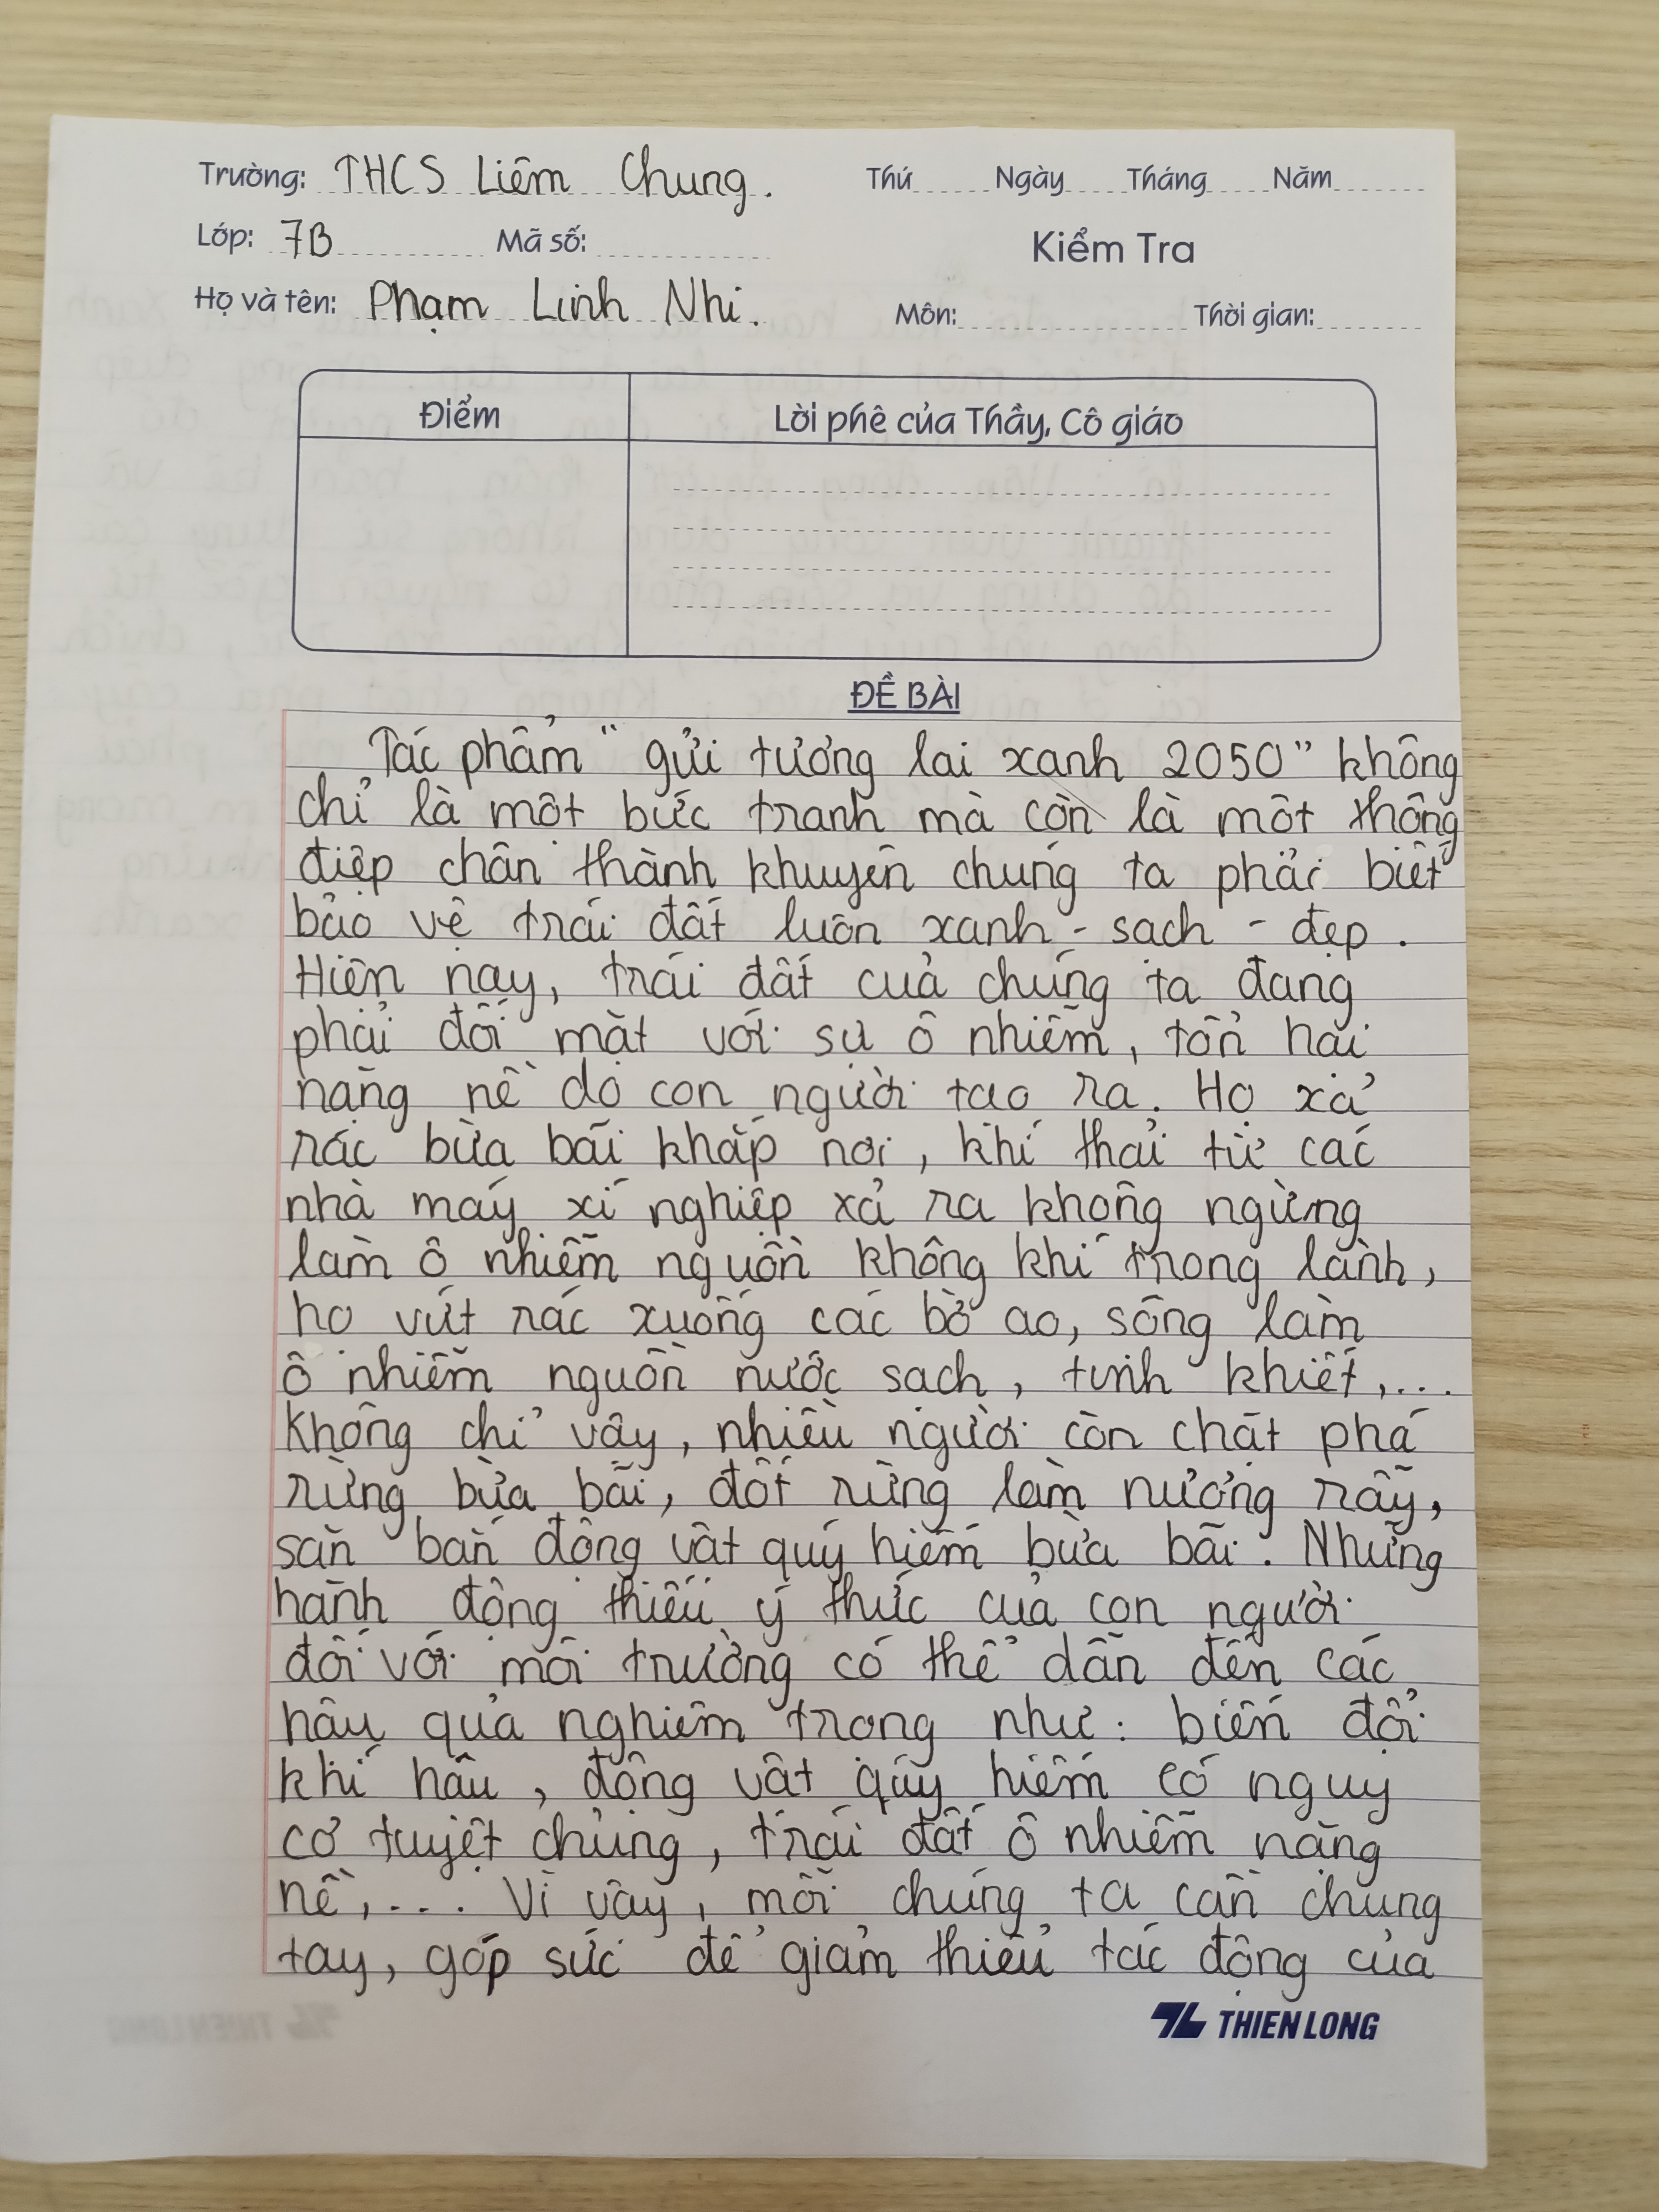 Trường: THCS Liêm Chung. Thứ Ngày Tháng Năm
Lớp: 7B Mã số:
Kiểm Tra
Họ và tên: Phạm Linh Nhi. Môn: Thời gian:
Điểm Lời phê của Thầy, Cô giáo
ĐỀ BÀI
Tác phẩm "gửi tương lai xanh 2050" không
chỉ là một bức tranh mà còn là một thông
điệp chân thành khuyên chúng ta phải biết
bảo vệ trái đất luôn xanh - sạch - đẹp.
Hiện nay, trái đất của chúng ta đang
phải đối mặt với sự ô nhiễm, tổn hại
nặng nề do con người tạo ra. Họ xả
rác bừa bãi khắp nơi, khí thải từ các
nhà máy xí nghiệp xả ra không ngừng
làm ô nhiễm nguồn không khí trong lành,
họ vứt rác xuống các bờ ao, sông làm
ô nhiễm nguồn nước sạch, tinh khiết,...
Không chỉ vậy, nhiều người còn chặt phá
rừng bừa bãi, đốt rừng làm nương rẫy,
săn bắn động vật quý hiếm bừa bãi. Những
hành động thiếu ý thức của con người
đối với môi trường có thể dẫn đến các
hậu quả nghiêm trọng như: biến đổi
khí hậu, động vật qúy hiếm có nguy
cơ tuyệt chủng, trái đất ô nhiễm nặng
nề,... Vì vậy, mỗi chúng ta cần chung
tay, góp sức để giảm thiểu tác động của
THIEN LONG